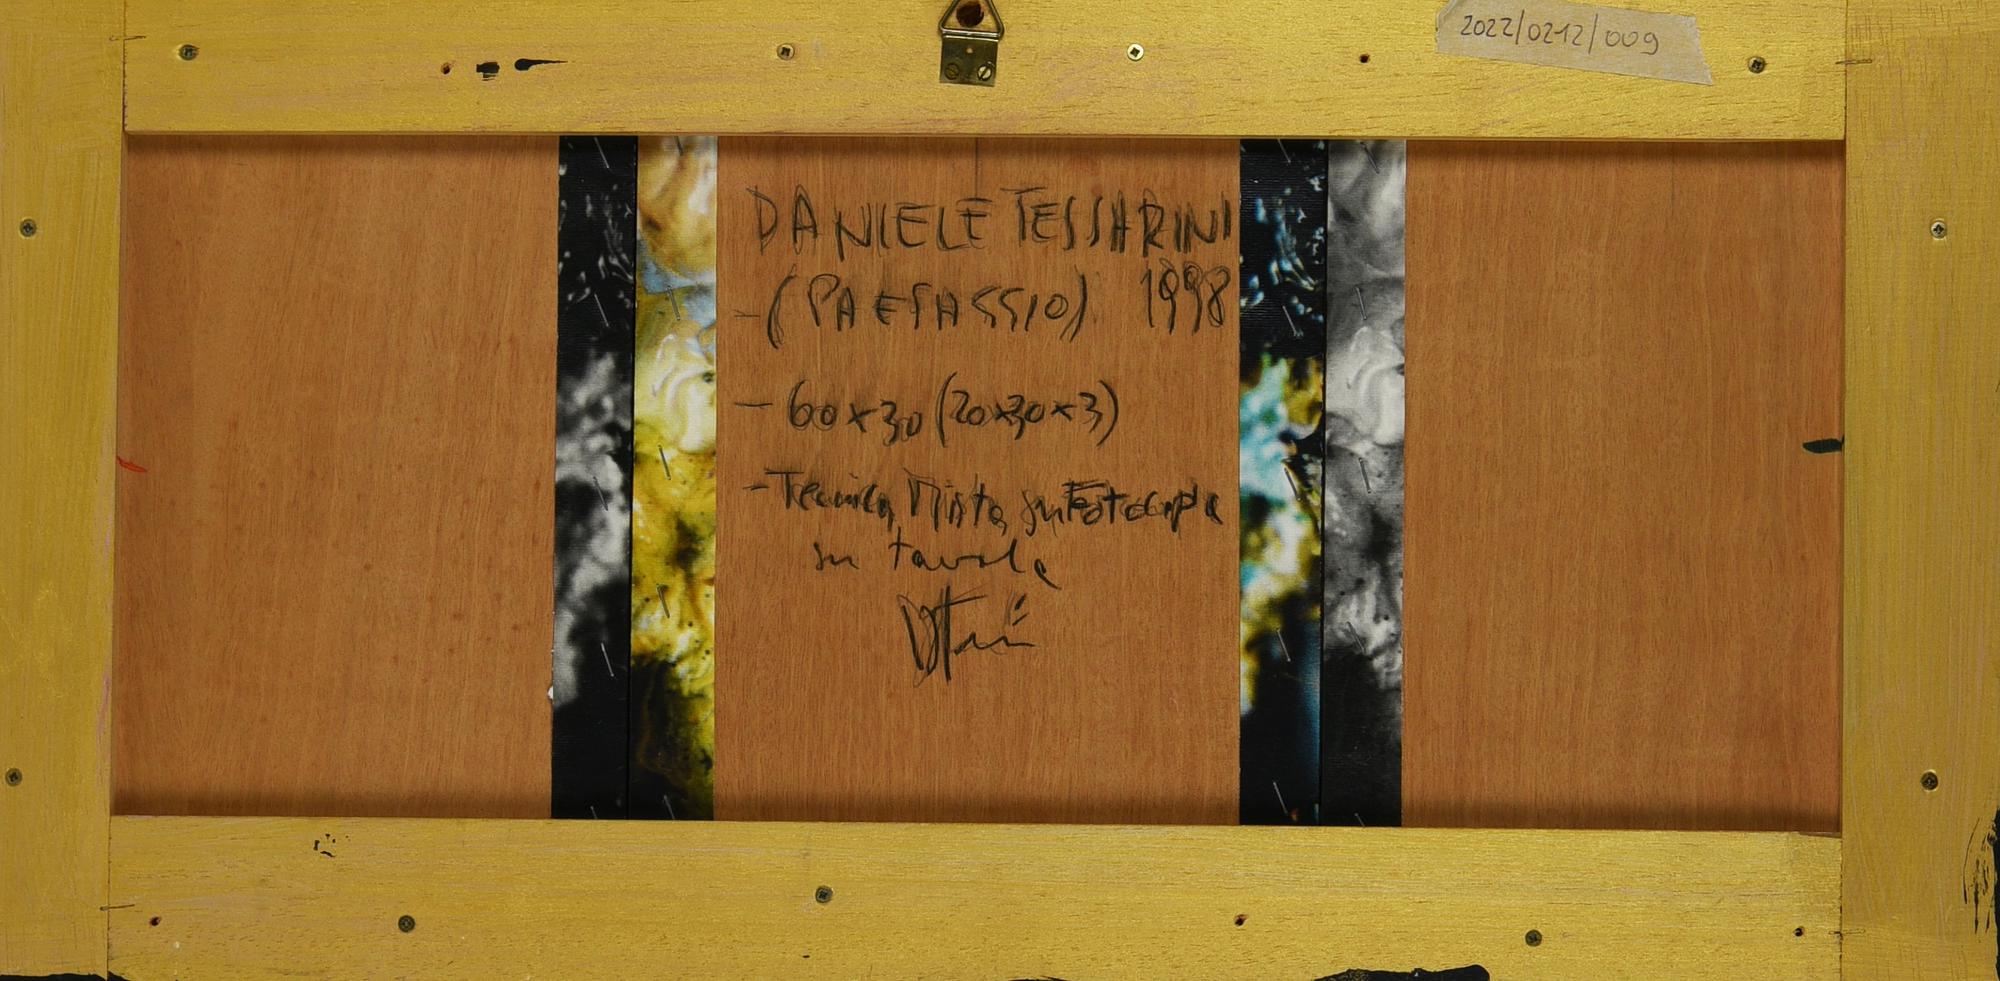 2022/0212/009
DANIELE TESSARINI
-(PAESAGGIO) 1998
- 60x30 (20x30x3)
- Tecnica Mista su Fotocopia
su tavola